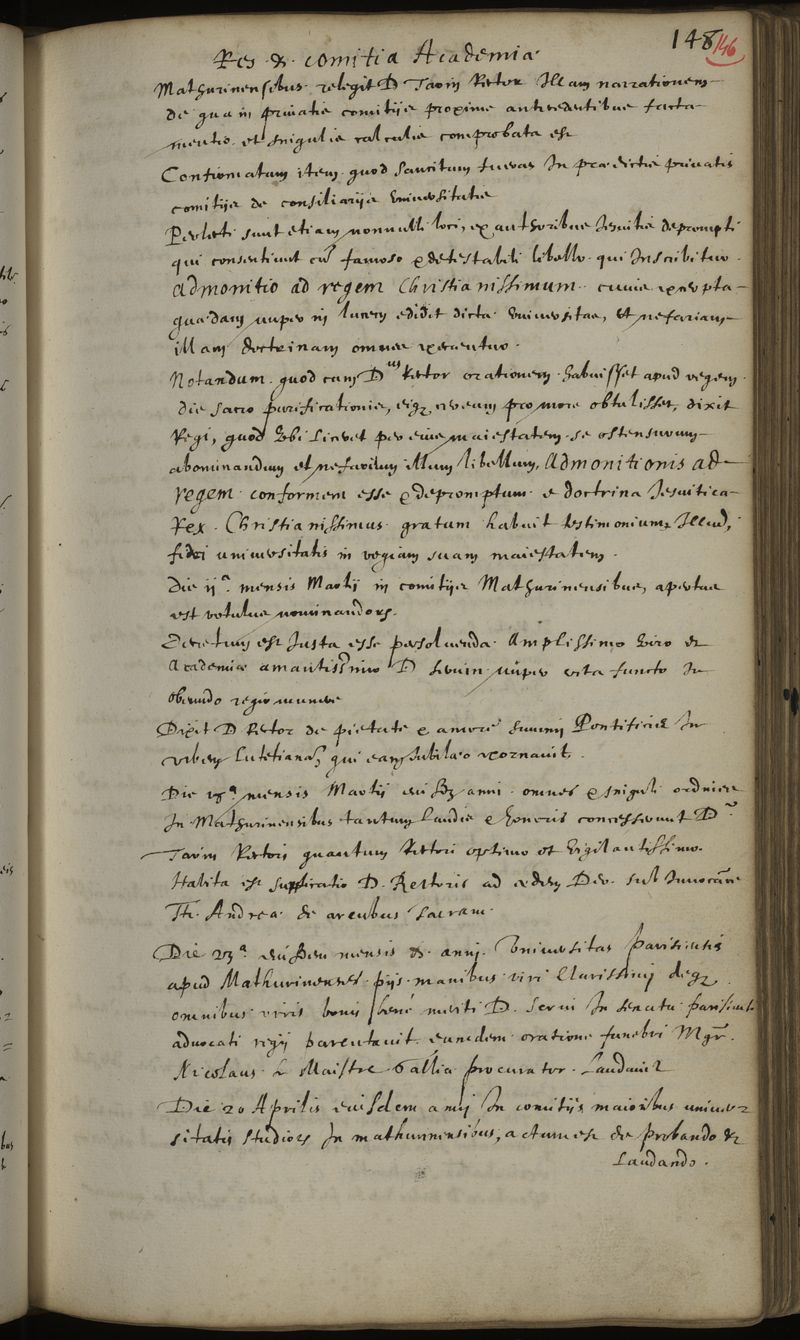 148 146
Res & comitia Academiæ
Mathurinensibus relegit D Tarin Rector Illam narrationem
de qua in privatis comitijs proxime antecedentibus facta
mentio et singulis calculis comprobata est
Confirmatum item quod sancitum fuerat In prædictis privatis
comitijs de consiliarijs universitatis
Perlecti sunt etiam nonnulli loci, ex authoribus Jesuitis deprompti
qui consentiunt cū famoso & detestabili libello qui Inscribitur
admonitio ad regem Christianissimum cuius excerpta
quædam nuper in lucem edidit dicta universitas, et nefariam
illam doctrinam omnes execrantur.
Notandum quod cum D.us Rector orationem habuisset apud regem
die sacro purificationis, eiq, cereum pro more obtulisset, dixit
Regi, quod ubi liceret per eius maiestatem se ostensurum
abominandum et nefarium illum libellum, Admonitionis ad
regem conformem esse & depromptum e doctrina Jesuitica
Rex Christianissimus gratum habuit testimonium Illud,
fidei universitatis in regiam suam maiestatem.
Die ij.a mensis Martij in comitijs Mathurinensibus, apertus
est rotulus nominandors.
Decretum est Justa esse persolvenda Amplissimo viro &
Academiæ amantissimo D Servin nuper vita functo In
obeundo regio munere
Dixit D Rector de pietate & amore summi Pontificis In
urbem Lutetianā, qui eam Jubilæo exornavit.
Die mensis Martij anni omnes & singuli ordines
In Mathurinensibus tantum laudis & honoris concesserunt D.
Tarin Rectoris quantum Rectori optimo et vigilantissimo.
Habita est supplicatio D. Rectoris ad ædem Deo sub Invocāne
Sti. Andreæ de arcubus sacram.
Die 23.a eiusdem mensis & anni Universitas parisiensis
apud Mathurinenses pijs manibus viri Clarissimi deq
omnibus viris bonis bene meriti D. Servin In senatu parisiensi
advocati regij parentavit eumdem oratione funebri Mgr.
Nicolaus Le Maistre Galliæ procurator laudavit
Die 20 Aprilis eiusdem anni In comitijs maioribus univer=
sitatis studiors In mathurinensibus, actum est de probando &
Laudando.